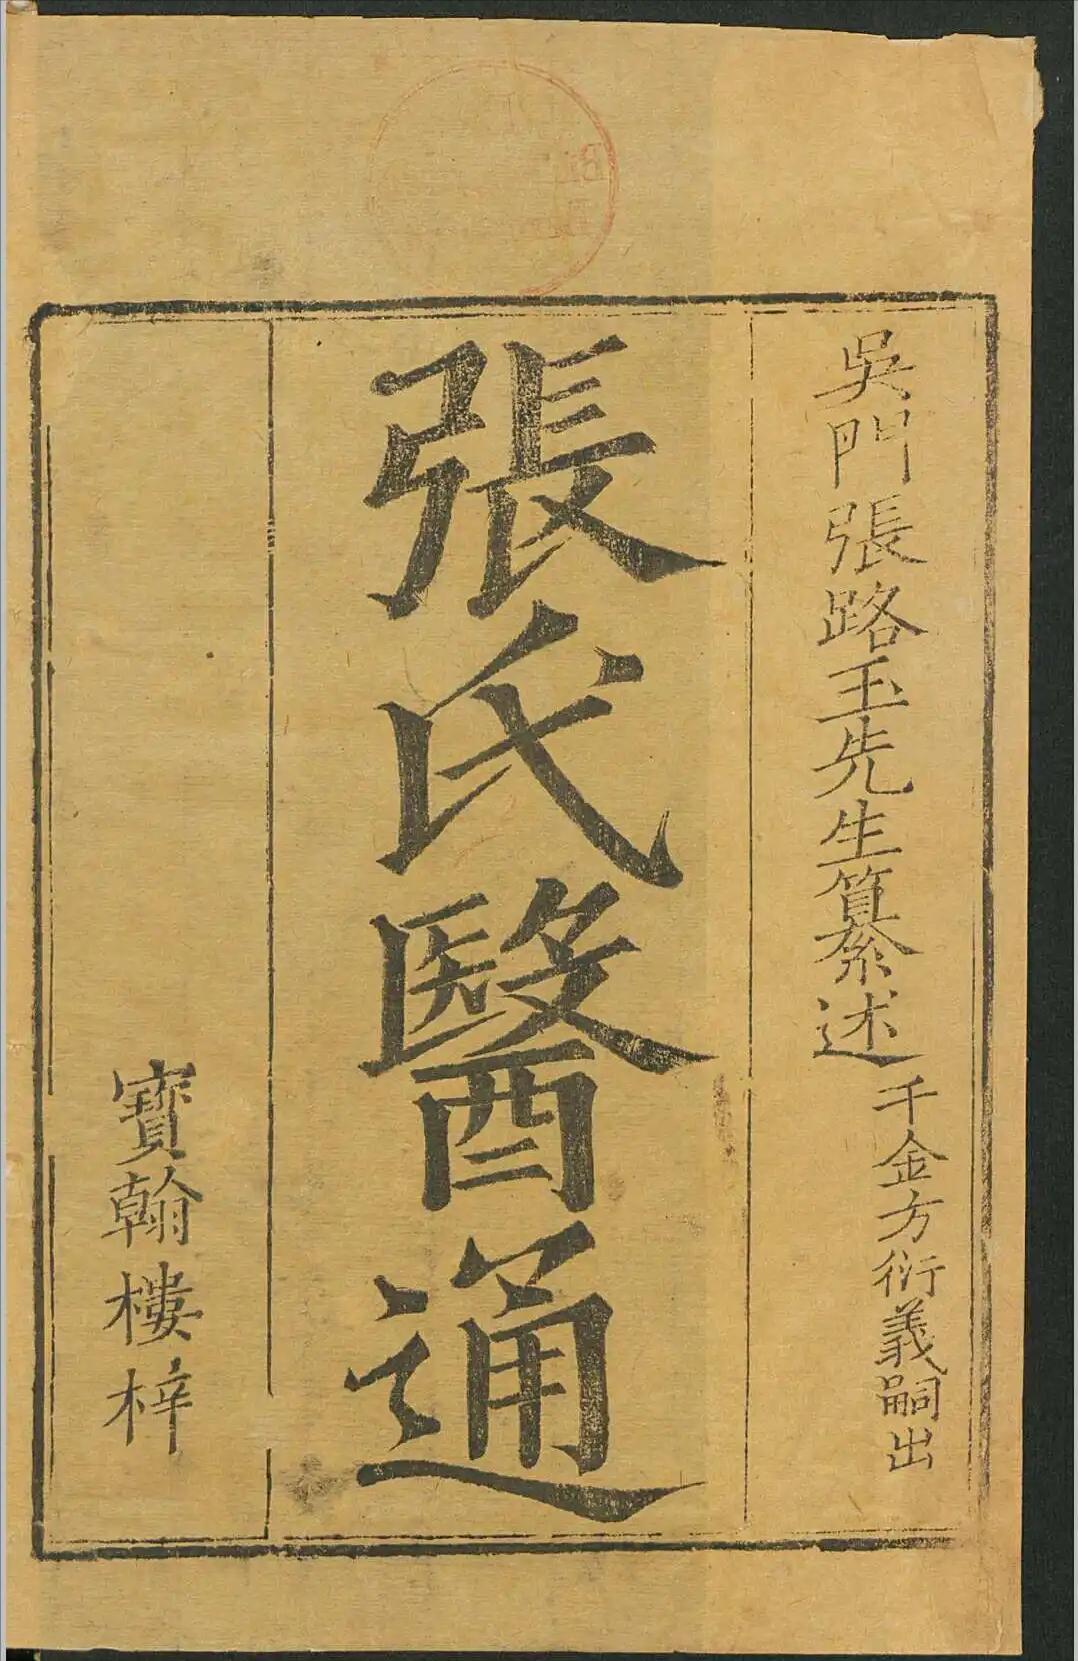 吳門張路玉先生纂述
千金方衍義嗣出
張氏醫通
寶翰樓梓